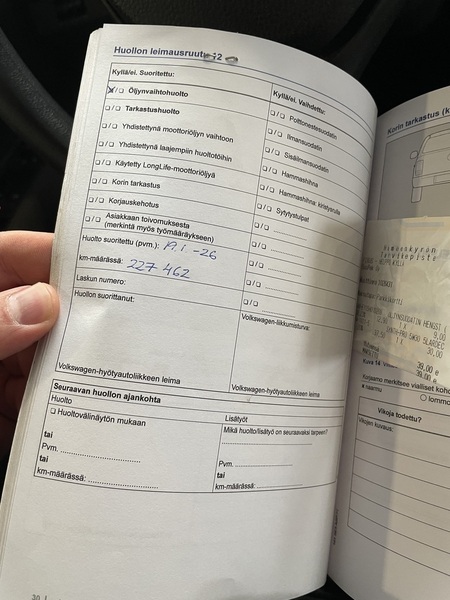 Huollon leimausruutu 12
Kyllä/ei. Suoritettu:
❑/❑ Öljynvaihtohuolto
❑/❑ Tarkastushuolto
❑/❑ Yhdistettynä moottoriöljyn vaihtoon
❑/❑ Yhdistettynä laajempiin huoltotöihin
❑/❑ Käytetty LongLife-moottoriöljyä
❑/❑ Korin tarkastus
❑/❑ Korjauskehotus
❑/❑ Asiakkaan toivomuksesta
(merkintä myös työmääräykseen)
Huolto suoritettu (pvm.):
km-määrässä: 227 462
Laskun numero:
Huollon suorittanut:
Volkswagen-hyötyautoliikkeen leima
Kyllä/ei. Vaihdettu:
❑/❑ Polttonestesuodatin
❑/❑ Ilmansuodatin
❑/❑ Sisäilmansuodatin
❑/❑ Hammashihna
❑/❑ Hammashihna: kiristysrulla
❑/❑ Sytytystulpat
❑/❑ ....................
❑/❑ ....................
❑/❑ ....................
❑/❑ ....................
❑/❑
Volkswagen-liikkumisturva:
Volkswagen-hyötyautoliikkeen leima
Seuraavan huollon ajankohta
Huolto
❑ Huoltovälinäytön mukaan
tai
Pvm. ....................
tai
km-määrässä: ....................
Lisätyöt
Mikä huolto/lisätyö on seuraavaksi tarpeen?
....................
Pvm. ....................
tai
km-määrässä: ....................
Korin tarkastus
ÖLJYNSUODATIN HENGST
1 X 9,00
30,00
39,00 e
39,00 e
Kuva 14
Korjaamo merkitsee vialliset
naarmu
Vikoja todettu?
Vikojen kuvaus: